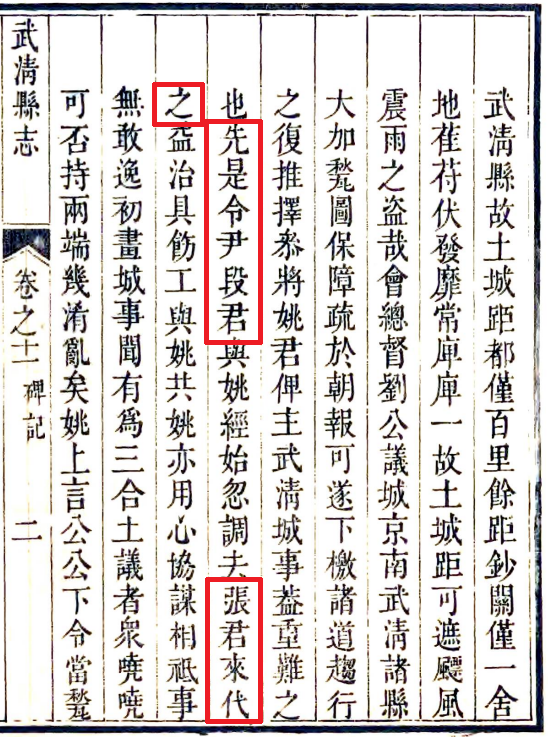 武清縣故土城距都僅百里餘距鈔關僅一舍
地萑苻伏發靡常庫庫一故土城距可遮颶風
震雨之盜哉會總督劉公議城京南武清諸縣
大加甃圖保障疏於朝報可遂下檄諸道趨行
之復推擇叅將姚君俾主武清城事葢重難之
也先是令尹段君與姚經始忽調去張君來代
之葢治具飭工與姚共姚亦用心協謀相祗事
無敢逸初畫城事聞有爲三合土議者衆嘵嘵
可否持兩端幾淆亂矣姚上言公公下令當甃
武清縣志 卷之十一 碑記 二